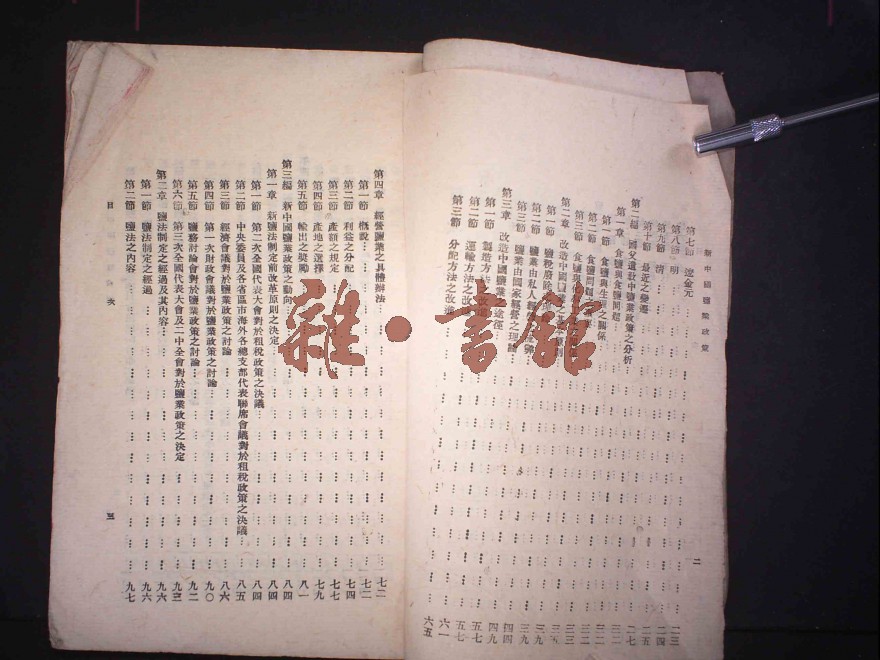 新中國鹽業政策
二
第七節 遼金元 一三
第八節 明
第九節 清 二四
第十節 最近之變遷 二五
第二編 國父遺教中鹽業政策之分析 二七
第一章 食鹽與食鹽問題
第一節 食鹽與生理之關係
第二節 食鹽問題
第三節 食鹽
第二章 改造中國鹽業之 原則
第一節 鹽稅廢除 三五
第二節 鹽業由私人經營 三九
第三節 鹽業由國家經營之理論 三九
第三章 改造中國鹽業之途徑 四四
第一節 製造方法之改進 四九
第二節 運輸方法之改進 五七
第三節 分配方法之改進 六五
第四章 經營鹽業之具體辦法 七二
第一節 概說 七二
第二節 利益之分配 七四
第三節 產額之規定 七七
第四節 產地之選擇 七九
第五節 輸出之獎勵 八一
第三編 新中國鹽業政策之動向 八四
第一章 新鹽法制定前改革原則之決定 八四
第一節 第二次全國代表大會對於租稅政策之決議 八四
第二節 中央委員及各省區市海外各總支部代表聯席會議對於租稅政策之決議 八五
第三節 經濟會議對於鹽業政策之討論 八六
第四節 第一次財政會議對於鹽業政策之討論 九〇
第五節 鹽務討論會對於鹽業政策之討論 九二
第六節 第三次全國代表大會及二中全會對於鹽業政策之決定 九三
第二章 鹽法制定之經過及其內容 九六
第一節 鹽法制定之經過 九六
第二節 鹽法之內容 九七
目 次
三
雜·書館